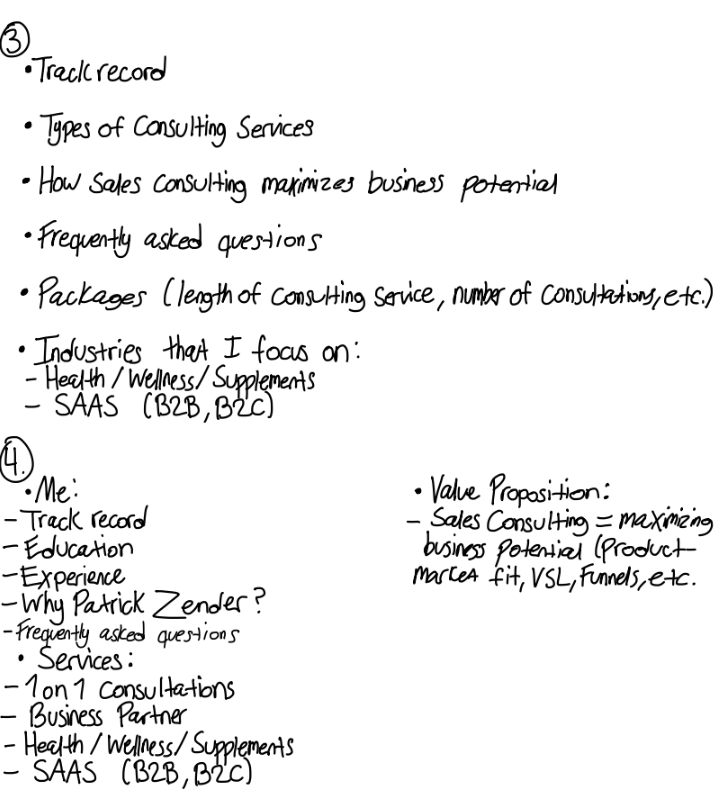 ③
• Track record
• Types of Consulting Services
• How Sales Consulting maximizes business potential
• Frequently asked questions
• Packages (length of consulting service, number of consultations, etc.)
• Industries that I focus on:
- Health / Wellness / Supplements
- SAAS (B2B, B2C)
④.
• Me:
- Track record
- Education
- Experience
- Why Patrick Zender?
- Frequently asked questions
• Services:
- 1 on 1 consultations
- Business Partner
- Health / Wellness / Supplements
- SAAS (B2B, B2C)
• Value Proposition:
- Sales Consulting = maximizing
business potential (Product
market fit, VSL, Funnels, etc.